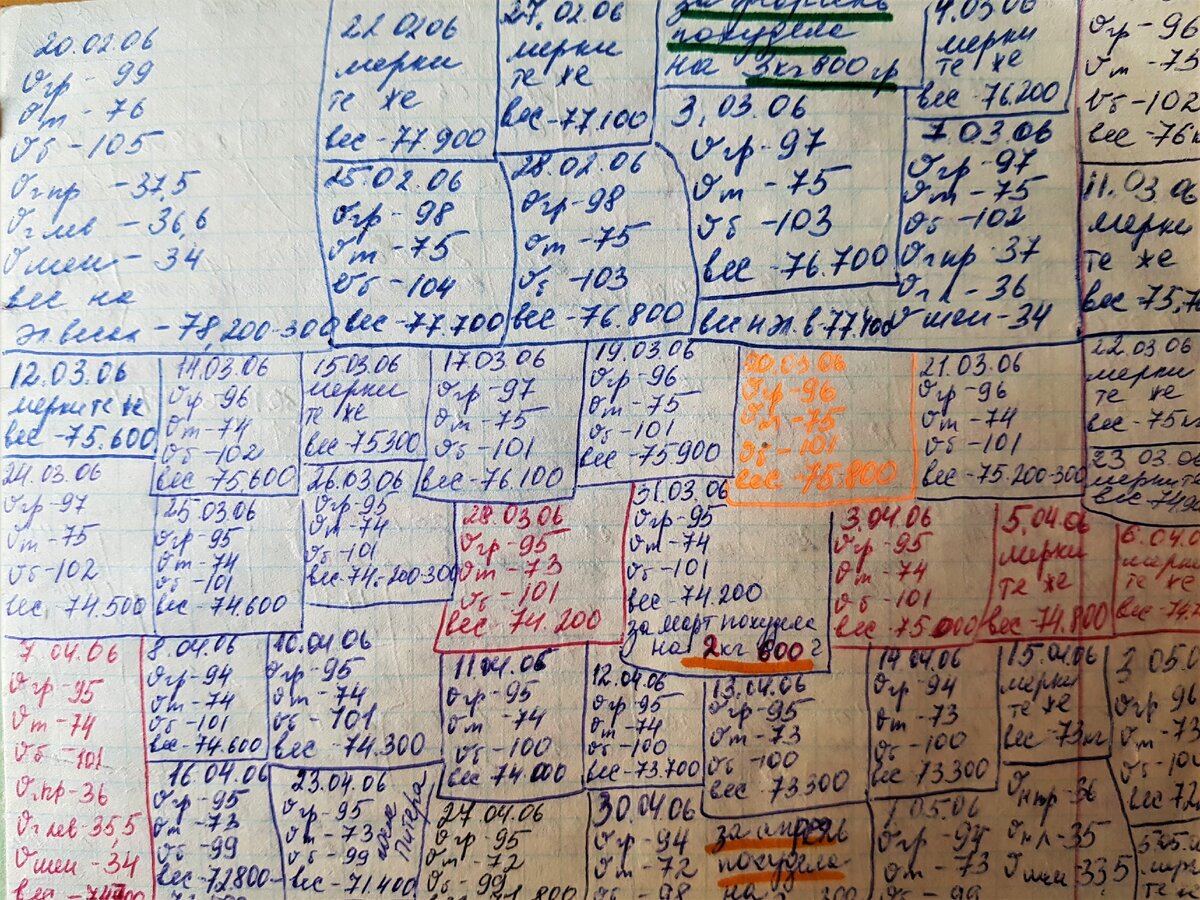 20.02.06
Огр - 99
От - 76
Об - 105
Огпр - 37,5
Оглев - 36,6
Ошеи - 34
вес на
эл весах - 78,200-300
22.02.06
мерки
те же
вес - 77.900
25.02.06
Огр - 98
От - 75
Об - 104
вес - 77.700
27.02.06
мерки
те же
вес - 77.100
28.02.06
Огр - 98
От - 75
Об - 103
вес - 76.800
за февраль
похудела
на 3кг 800 гр
3.03.06
Огр - 97
От - 75
Об - 103
вес - 76.700
вес н эл. в 77.400
4.03.06
мерки
те же
вес - 76.200
7.03.06
Огр - 97
От - 75
Об - 102
Огпр - 37
Огл - 36
Ошеи - 34
Огр - 96
От - 75
Об - 102
вес - 76
11.03.06
мерки
те же
вес - 75,7
12.03.06
мерки те же
вес - 75.600
14.03.06
Огр - 96
От - 74
Об - 102
вес - 75,600
15.03.06
мерки
те же
вес - 75300
17.03.06
Огр - 97
От - 75
Об - 101
вес - 76.100
19.03.06
Огр - 96
От - 75
Об - 101
вес - 75900
20.03.06
Огр - 96
От - 75
Об - 101
вес - 75.800
21.03.06
Огр - 96
От - 74
Об - 101
вес - 75.200-300
22.03.06
мерки
те же
вес - 75кг
23.03.06
мерки те
вес - 74,9
24.03.06
Огр - 97
От - 75
Об - 102
вес - 74.500
25.03.06
Огр - 95
От - 74
Об - 101
вес - 74.600
26.03.06
Огр - 95
От - 74
Об - 101
вес - 74.-200-300
28.03.06
Огр - 95
От - 73
Об - 101
вес - 74.200
31.03.06
Огр - 95
От - 74
Об - 101
вес - 74.200
за март похудела
на 2кг 600 г
3.04.06
Огр - 95
От - 74
Об - 101
вес - 75.000
5.04.06
мерки
те же
вес - 74.800
6.04.0
мерки
те же
вес - 74.
7.04.06
Огр - 95
От - 74
Об - 101
Огпр - 36
Оглев - 35,5
Ошеи - 34
8.04.06
Огр - 94
От - 74
Об - 101
вес - 74.600
10.04.06
Огр - 95
От - 74
Об - 101
вес - 74.300
11.04.06
Огр - 95
От - 74
Об - 100
вес - 74.000
12.04.06
Огр - 95
От - 74
Об - 100
вес - 73.700
13.04.06
Огр - 95
От - 73
Об - 100
вес - 73.300
14.04.06
Огр - 94
От - 73
Об - 100
вес - 73.300
15.04.06
мерки
те же
вес - 73кг
3 05.0
Огр 94
От - 73
Об - 100
вес - 72
16.04.06
Огр - 95
От - 73
Об - 99
вес - 72800
23.04.06
Огр - 95
От - 73
Об - 99
вес - 71.400
после
Питера
27 04.06
Огр - 95
От - 72
Об - 99
30.04.06
Огр - 94
От - 72
Об - 98
за апрель
похудела
на
1.05.06
Огр - 94
От - 73
Об - 99
Огпр - 36
Огл - 35
Ошеи - 33,5
мерки
те